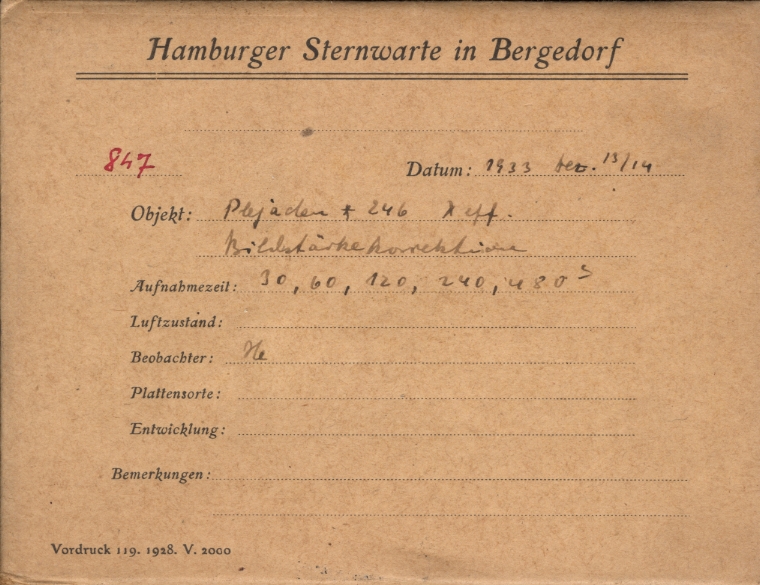 Hamburger Sternwarte in Bergedorf
847
Datum: 1933 Dez. 13/14
Objekt: Plejaden * 246 λ eff.
Bildstärkekorrektion
Aufnahmezeit: 30, 60, 120, 240, 480 s
Luftzustand:
Beobachter: He
Plattensorte:
Entwicklung:
Bemerkungen:
Vordruck 119. 1928. V. 2000